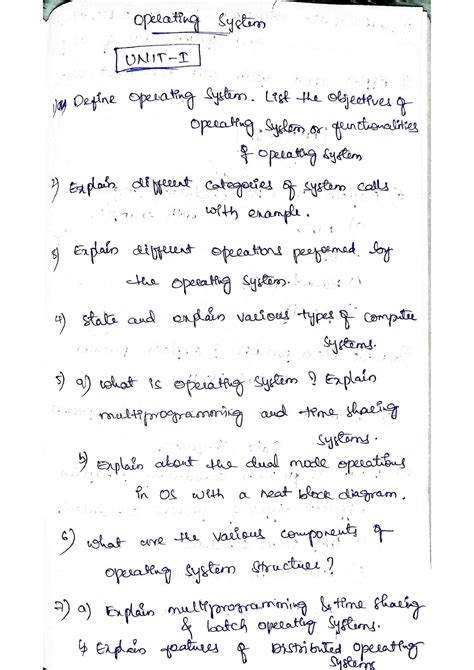 Operating System
UNIT-I
1) a) Define Operating System. List the objectives of
Operating System or functionalities
of operating System
2) Explain different categories of system calls
with example.
3) Explain different operations performed by
the operating System.
4) State and explain various types of computer
Systems.
5) a) What is operating System? Explain
multiprogramming and time sharing
Systems.
b) Explain about the dual mode operations
in OS with a neat block diagram.
6) What are the various components of
operating System Structure?
7) a) Explain multiprogramming & time sharing
& batch operating Systems.
b) Explain features of Distributed Operating
Systems